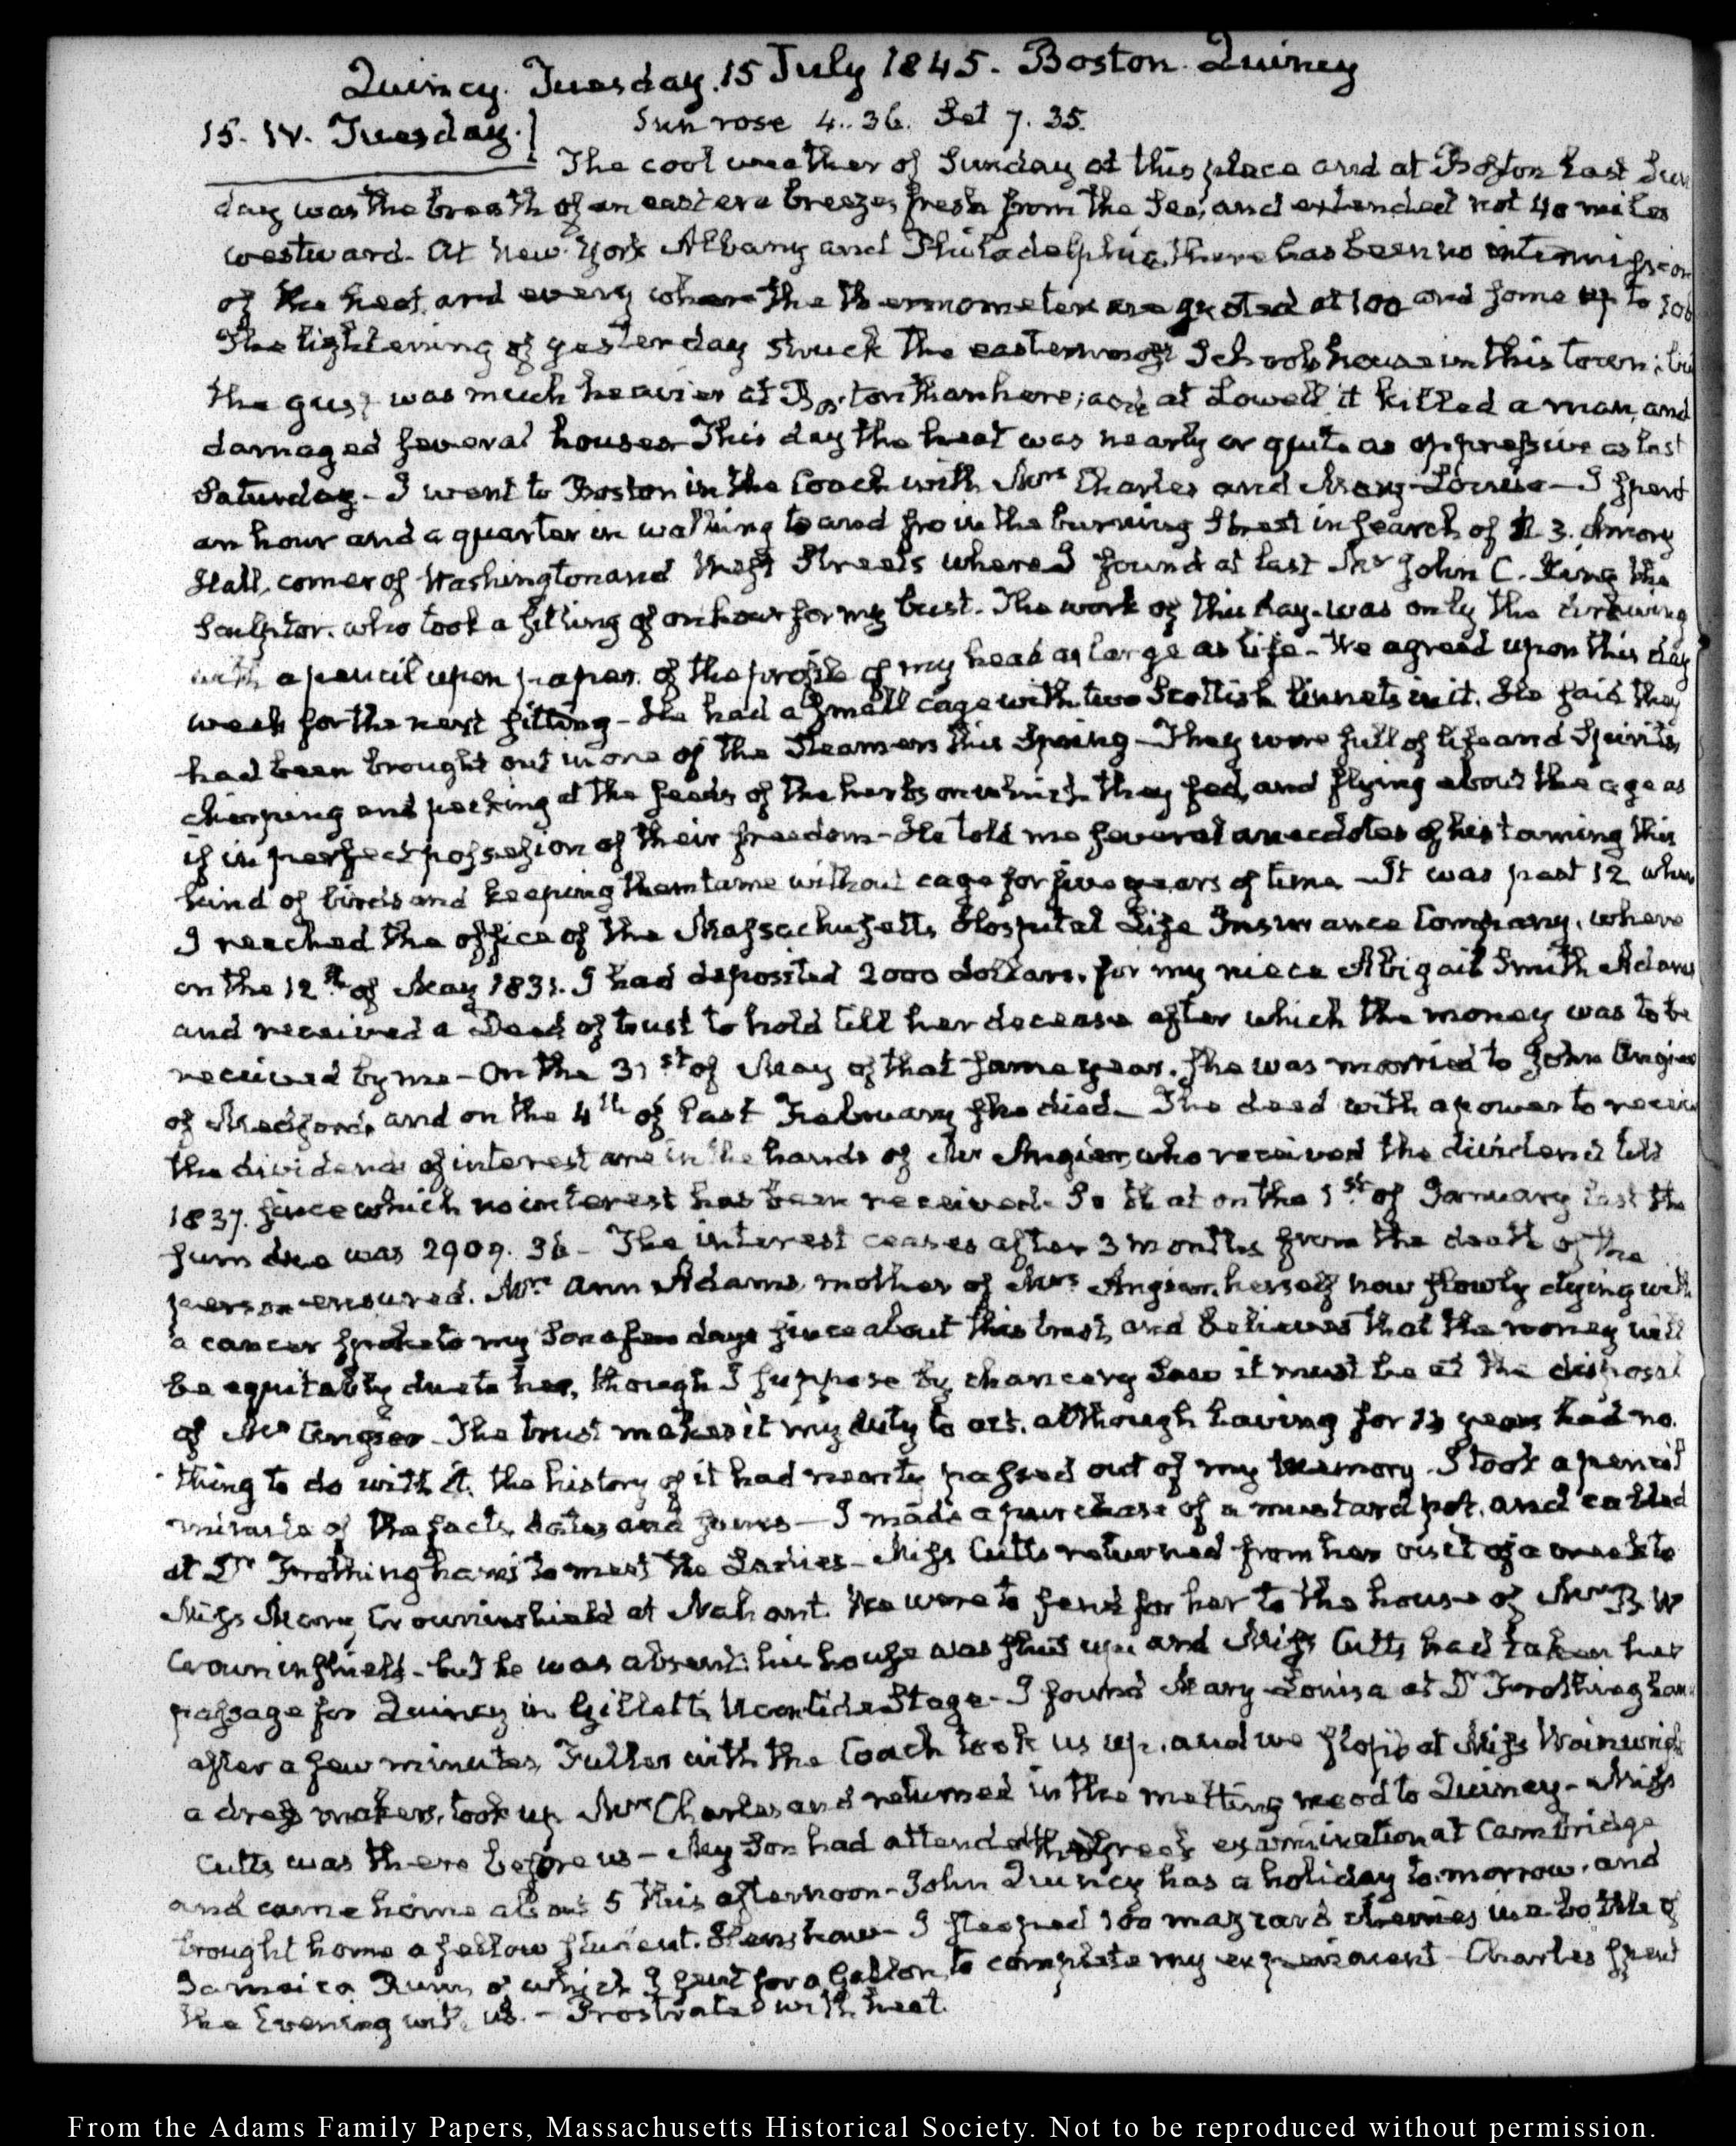 Quincy. Tuesday. 15 July 1845. Boston. Quincy
15. IV. Tuesday. Sun rose 4..36. Set 7.35.
The cool weather of Sunday at this place and at Boston last Sun
day was the breath of an eastern breeze, fresh from the Sea, and extended not 40 miles
westward. At New-York Albany and Philadelphia, there has been no intermission
of the heat, and every where the thermometers are quoted at 100 and some up to 106
The lightening of yesterday struck the easternmost School house in this town; but
the gust was much heavier at Boston than here; and at Lowell it killed a man, and
damaged several houses This day the heat was nearly or quite as oppressive as last
Saturday - I went to Boston in the Coach with Mrs Charles and Mary-Louisa - I spent
an hour and a quarter in walking to and fro in the burning Street in search of N. 3. Amory
Hall, corner of Washington and West Streets where I found at last Mr John C. King the
Sculptor. who took a sitting of an hour for my bust. The work of this day was only the drawing
with a pencil upon paper. of the profile of my head as large as life - We agreed upon this day
week for the next sitting - He had a small cage with two Scottish linnets in it. He said they
had been brought out in one of the Steamers this Spring - They were full of life and Spirits,
chirping and pecking at the seeds of the herbs on which they fed, and flying about the cage as
if in perfect possession of their freedom - He told me several anecdotes of his taming this
kind of birds and keeping them tame without cage for five years of time - It was past 12 when
I reached the office of the Massachusetts Hospital Life Insurance Company, where
on the 12th of May 1831. I had deposited 2000 dollars, for my niece Abigail Smith Adams
and received a Deed of trust to hold till her decease after which the money was to be
received by me - On the 31st of May of that same year. she was married to John Angier
of Medford, and on the 4th of last February she died - The deed with a power to receive
the dividends of interest are in the hands of Mr Angier, who received the dividends till
1837. since which no interest has been received. So that on the 1st of January last the
sum due was 2909. 36 - The interest ceases after 3 months from the death of the
person ensured. Mrs Ann Adams, mother of Mrs Angier, herself now slowly dying with
a cancer spoke to my Son a few days since about this trust, and believes that the money will
be equitably due to her, though I suppose by chancery Law it must be at the disposal
of Mr Angier - The trust makes it my duty to act. although having for 13 years had no.
thing to do with it, the history of it had nearly passed out of my memory. I took a pencil
minute of the facts, dates and sums - I made a purchase of a mustard pot, and called
at Dr Frothingham's to meet the Ladies - Miss Cutts returned from her visit of a week to
Miss Mary Crowninshield at Nahant. We were to send for her to the house of Mr B W
Crowninshield - but he was absent: his house was shut up and Miss Cutts had taken her
passage for Quincy in Gillett's Noontide Stage - I found Mary-Louisa at Dr Frothingham
after a few minutes, Fuller with the Coach took us up. and we stopp'd at Miss Wainwright
a dress makers, took up Mrs Charles and returned in the melting mood to Quincy - Miss
Cutts was there before us - My Son had attended the Greek examination at Cambridge
and came home about 5 this afternoon - John Quincy has a holiday to-morrow. and
brought home a fellow student. Henshaw - I steeped 100 mazzard cherries in a bottle of
Jamaica Rum, of which I sent for a Gallon, to complete my experiment - Charles spent
the Evening with us. - Prostrated with heat.
From the Adams Family Papers, Massachusetts Historical Society. Not to be reproduced without permission.